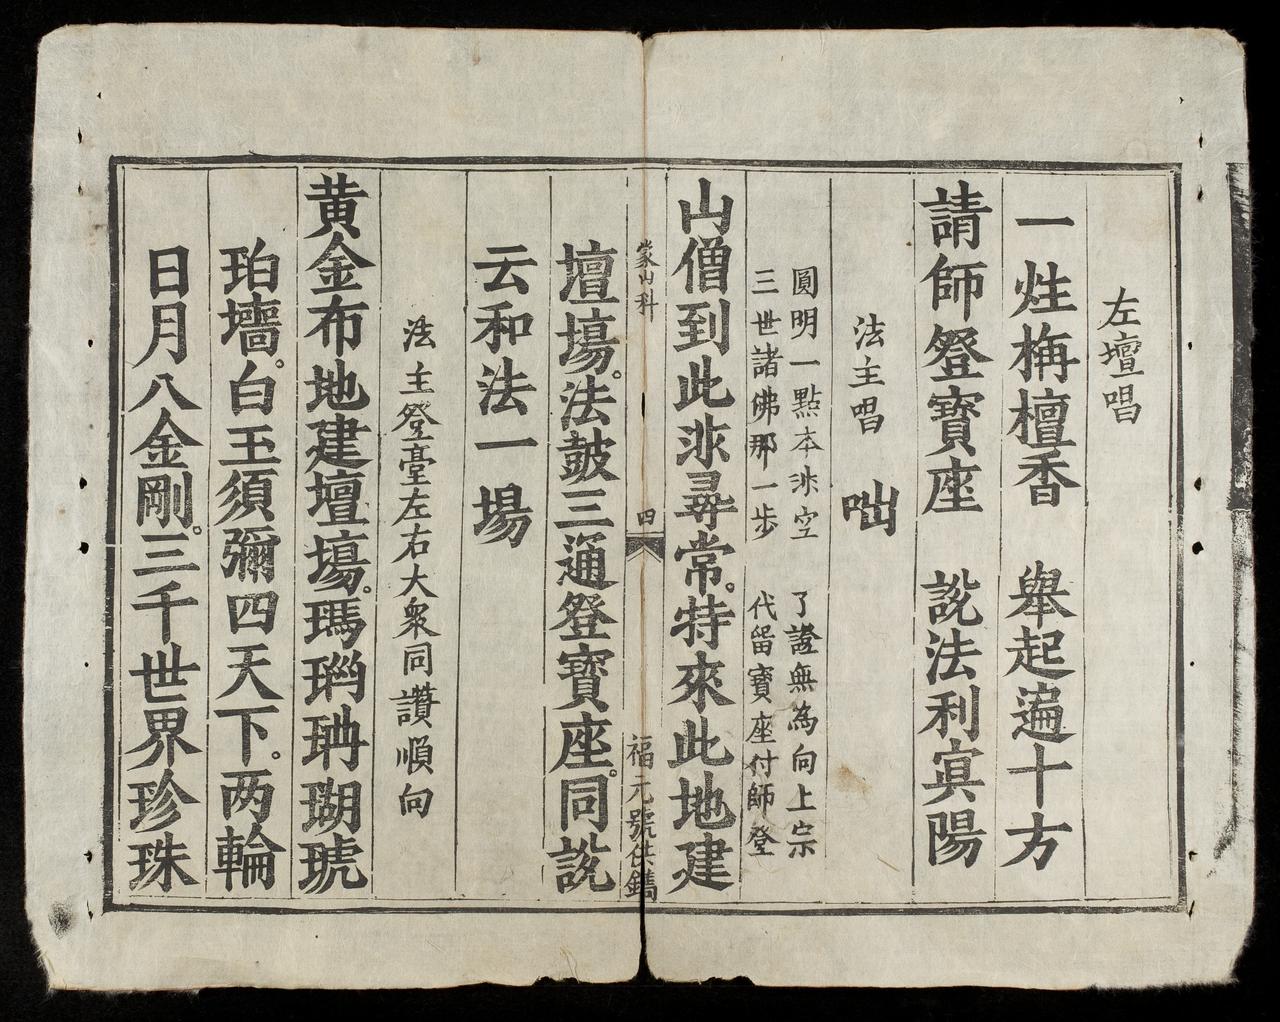 左壇唱
一炷栴檀香　舉起遍十方
請師登寶座　說法利冥陽
法主唱　咄
圓明一點本非空　了證無為向上宗
三世諸佛那一步　代留寶座付師登
山僧到此非尋常。特來此地建
蒙山科　四　福元號供鐫
壇場。法鼓三通登寶座。同說
云和法一場
法主登臺左右大衆同讚順向
黄金布地建壇場。瑪瑙珊瑚琥
珀墻。白玉須彌四天下。两輪
日月八金剛。三千世界珍珠